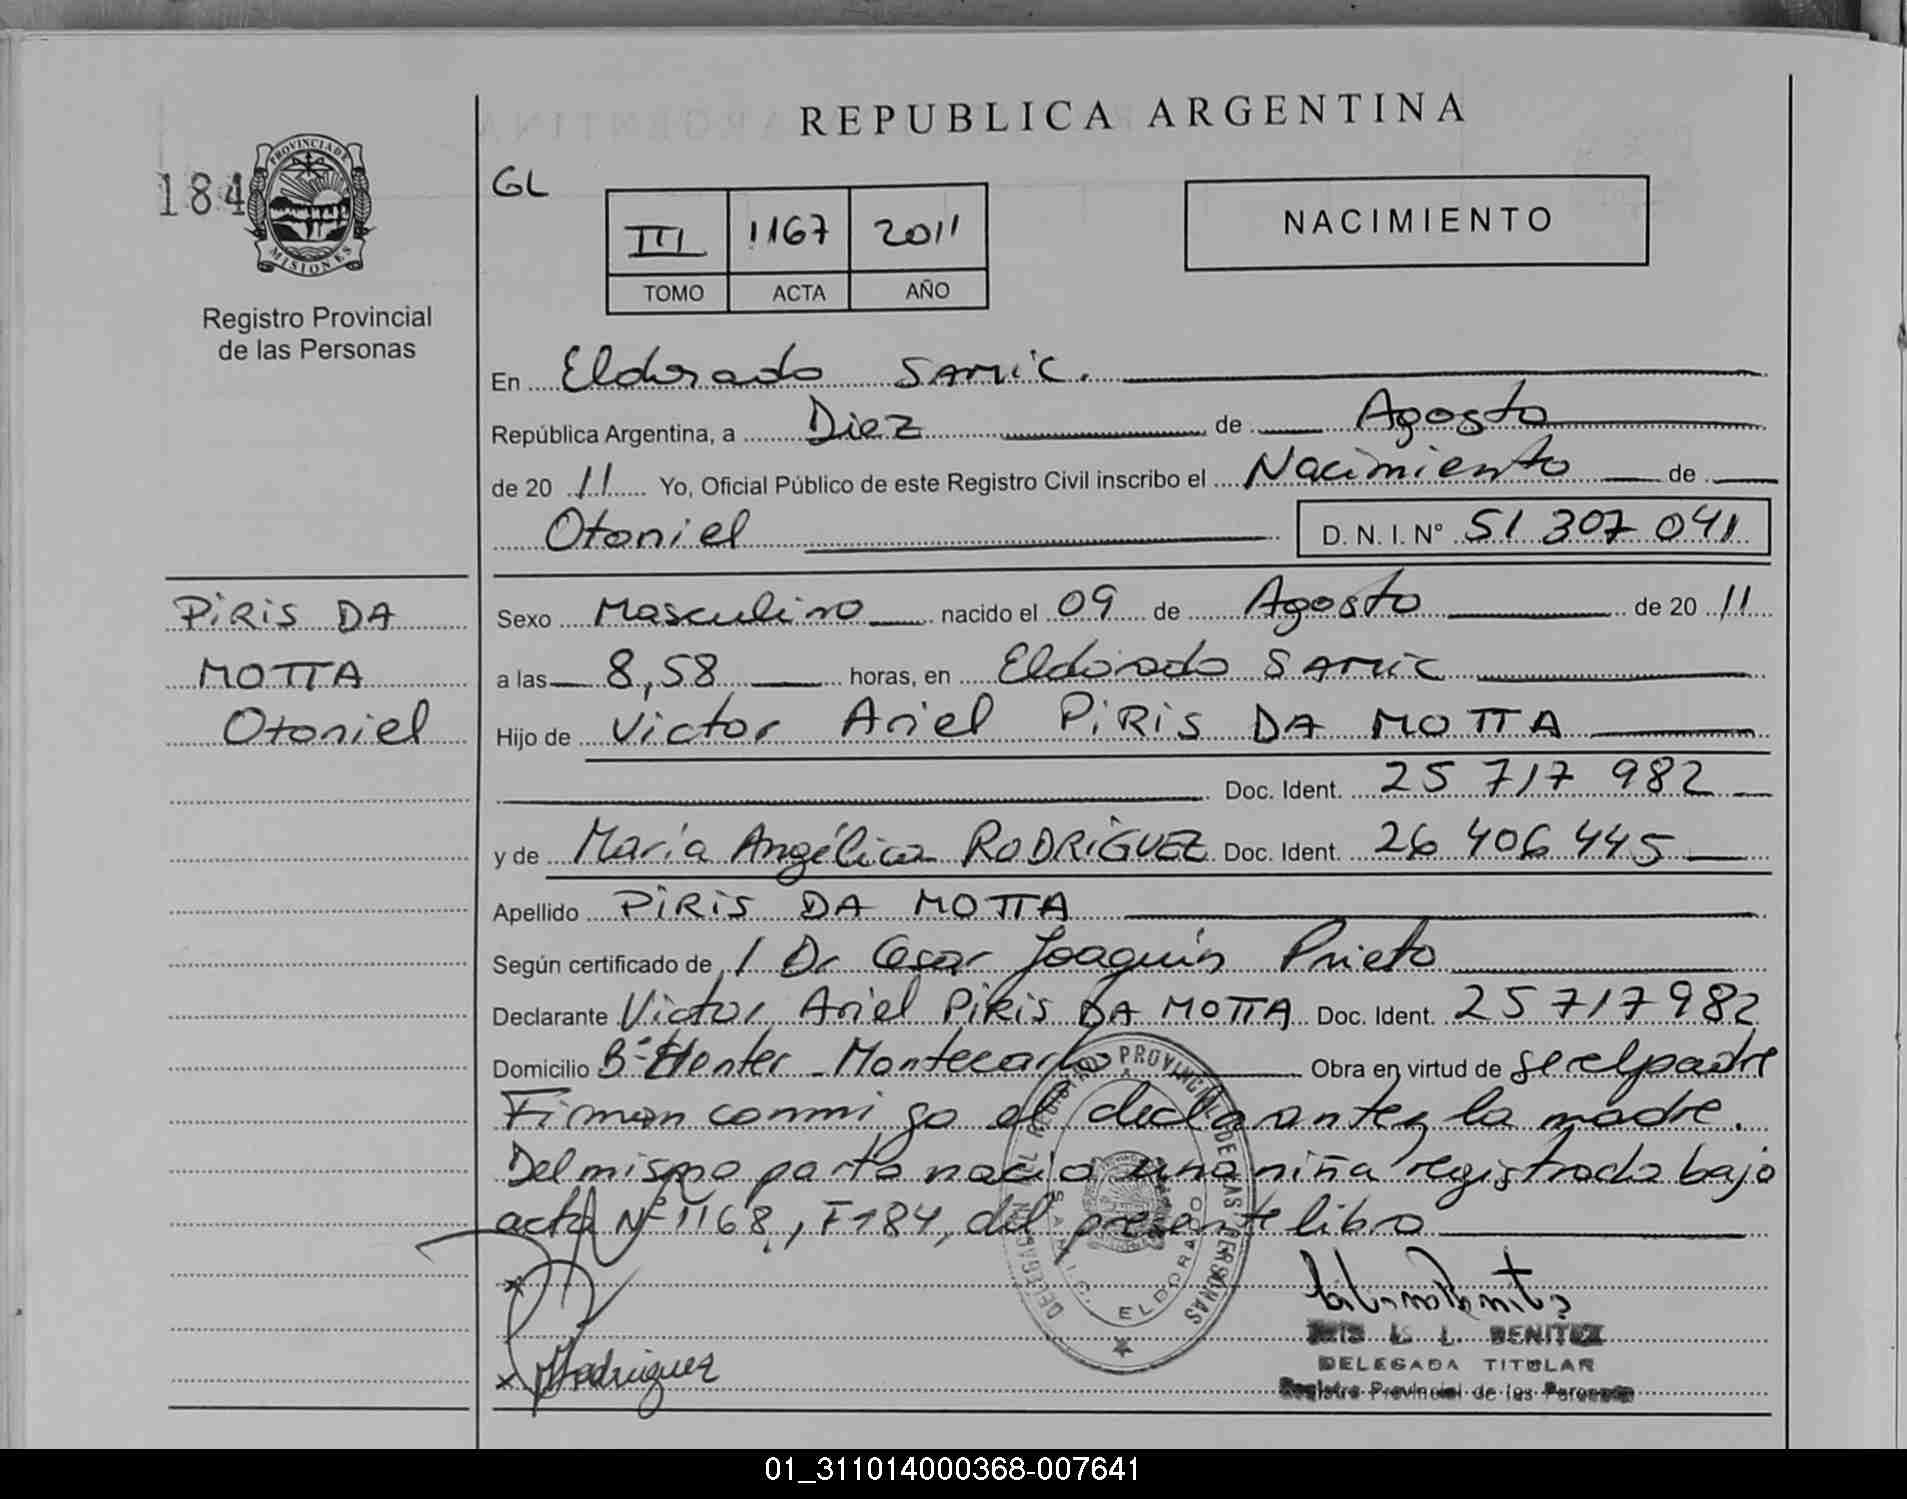 REPUBLICA ARGENTINA
184
PROVINCIA DE
MISIONES
GL
III 1167 2011
TOMO ACTA AÑO
NACIMIENTO
Registro Provincial
de las Personas
En Eldorado SAMIC.
República Argentina, a Diez de Agosto
de 20 11 Yo, Oficial Público de este Registro Civil inscribo el Nacimiento de
Otoniel D. N. I. Nº 51 307 041
PIRIS DA
MOTTA
Otoniel
Sexo Masculino nacido el 09 de Agosto de 20 11
a las 8,58 horas, en Eldorado SAMIC
Hijo de Victor Ariel PIRIS DA MOTTA
Doc. Ident. 25 717 982
y de María Angélica RODRIGUEZ Doc. Ident. 26 406 445
Apellido PIRIS DA MOTTA
Según certificado de / Dr Cesar Joaquín Prieto
Declarante Victor Ariel PIRIS DA MOTTA Doc. Ident. 25 717 982
Domicilio Bº Montecarlo Obra en virtud de ser el padre
Firman conmigo el declarante y la madre.
Del mismo parto nació una niña registrada bajo
acta Nº 1168, Fº 184, del presente libro
DELEGACION DEL REGISTRO PROVINCIAL DE LAS PERSONAS
S.A.M.I.C. ELDORADO
Rodriguez
L. BENITEZ
DELEGADA TITULAR
Registro Provincial de las Personas
01_311014000368-007641